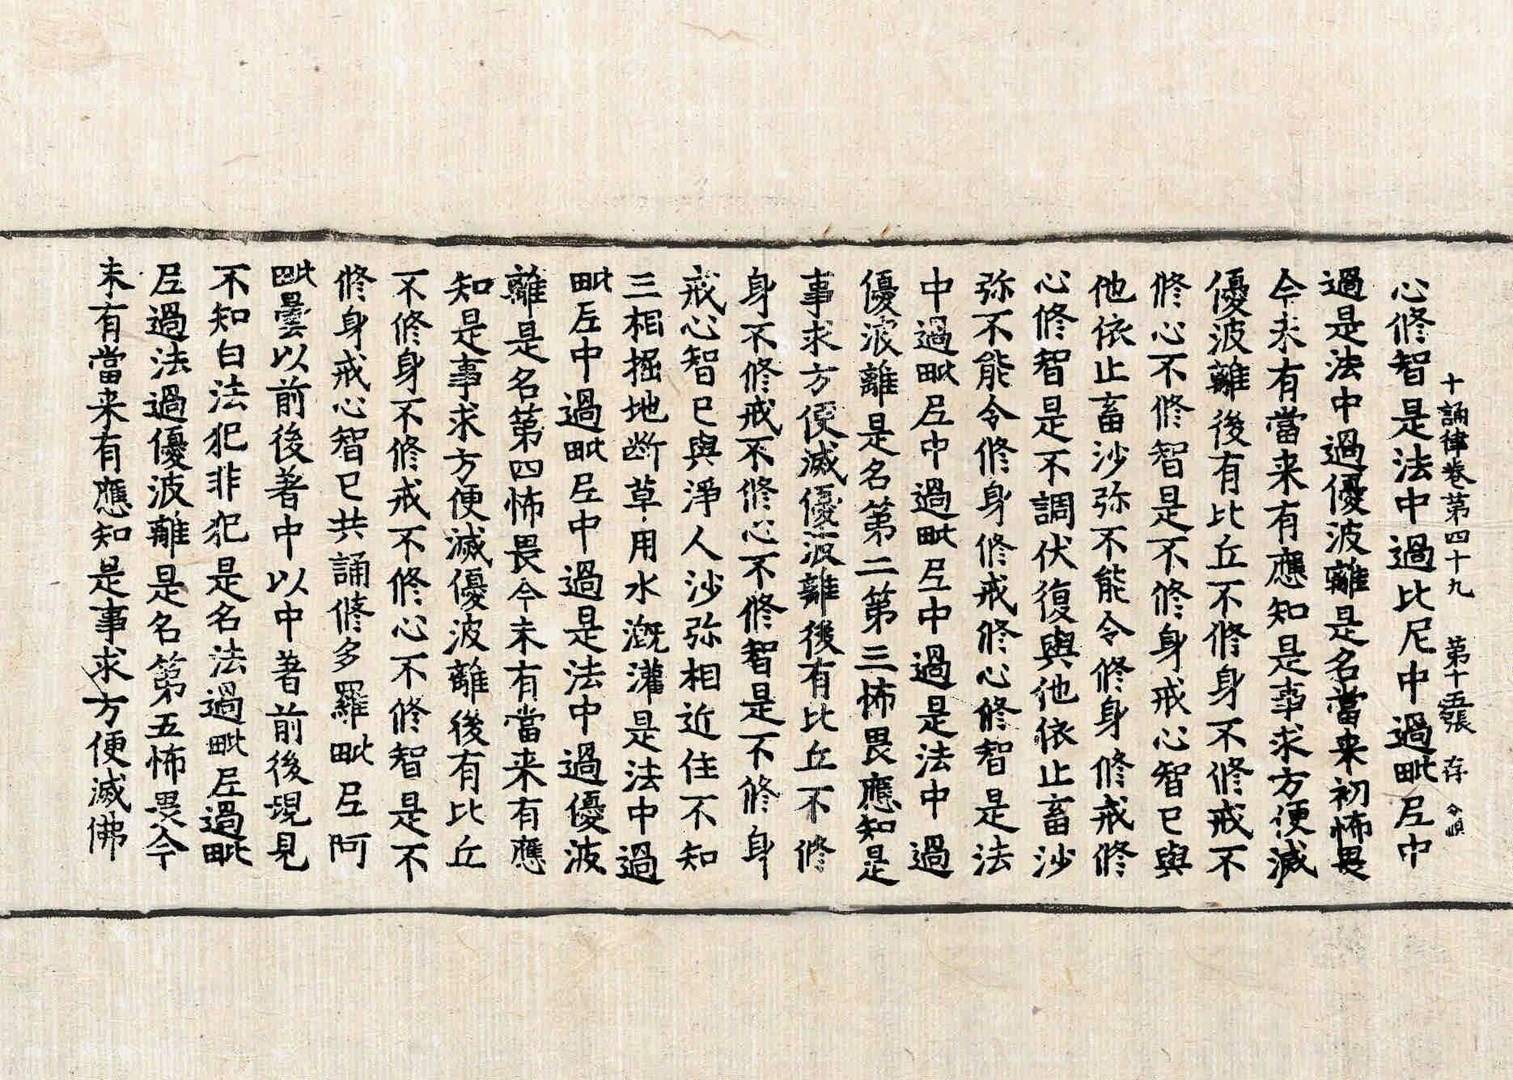 十誦律卷第四十九　第十五張　存
心修智是法中過比尼中過毗尼中
過是法中過優波離是名當来初怖畏
今未有當来有應知是事求方便滅
優波離後有比丘不修身不修戒不
修心不修智是不修身戒心智已與
他依止畜沙弥不能令修身修戒修
心修智是不調伏復與他依止畜沙
弥不能令修身修戒修心修智是法
中過毗尼中過毗尼中過是法中過
優波離是名第二第三怖畏應知是
事求方便滅優波離後有比丘不修
身不修戒不修心不修智是不修身
戒心智已與淨人沙弥相近住不知
三相掘地断草用水溉灌是法中過
毗尼中過毗尼中過是法中過優波
離是名第四怖畏今未有當来有應
知是事求方便滅優波離後有比丘
不修身不修戒不修心不修智是不
修身戒心智已共誦修多羅毗尼阿
毗曇以前後著中以中著前後現見
不知白法犯非犯是名法過毗尼過毗
尼過法過優波離是名第五怖畏今
未有當来有應知是事求方便滅佛